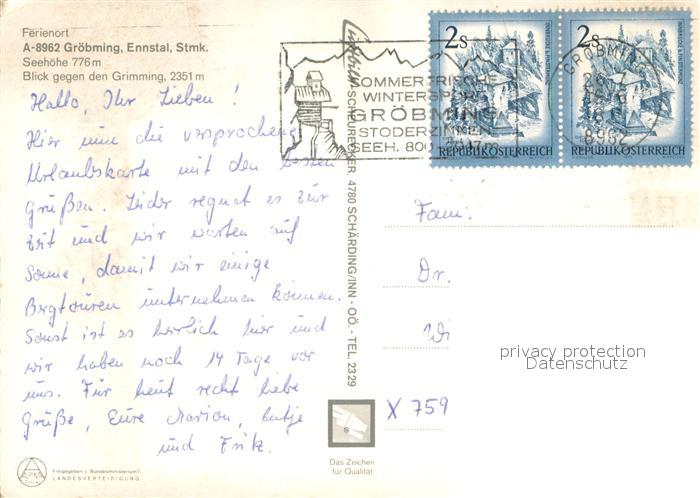 Ferienort
A-8962 Gröbming, Ennstal, Stmk.
Seehöhe 776 m
Blick gegen den Grimming, 2351 m
Hallo, Ihr Lieben!
Hier nun die versprochene
Urlaubskarte mit den besten
Grüßen. Leider regnet es zur
Zeit und wir warten auf
Sonne, damit wir einige
Bergtouren unternehmen können.
Sonst ist es herrlich hier und
wir haben noch 14 Tage vor
uns. Für heut recht liebe
Grüße, Eure Marion, Antje
und Fritz.
Freigegeben v. Bundesministerium f.
LANDESVERTEIDIGUNG
SCHEURECKER, 4780 SCHÄRDING/INN - OÖ. - TEL. 2329
SOMMERFRISCHE
WINTERSPORT
GRÖBMING
STODERZINKEN
SEEH. 800
GRÖBMING
8962
2s
REPUBLIK ÖSTERREICH
2s
REPUBLIK ÖSTERREICH
Fam.
Dr.
Wi
privacy protection
Datenschutz
X 759
S
Das Zeichen
für Qualität